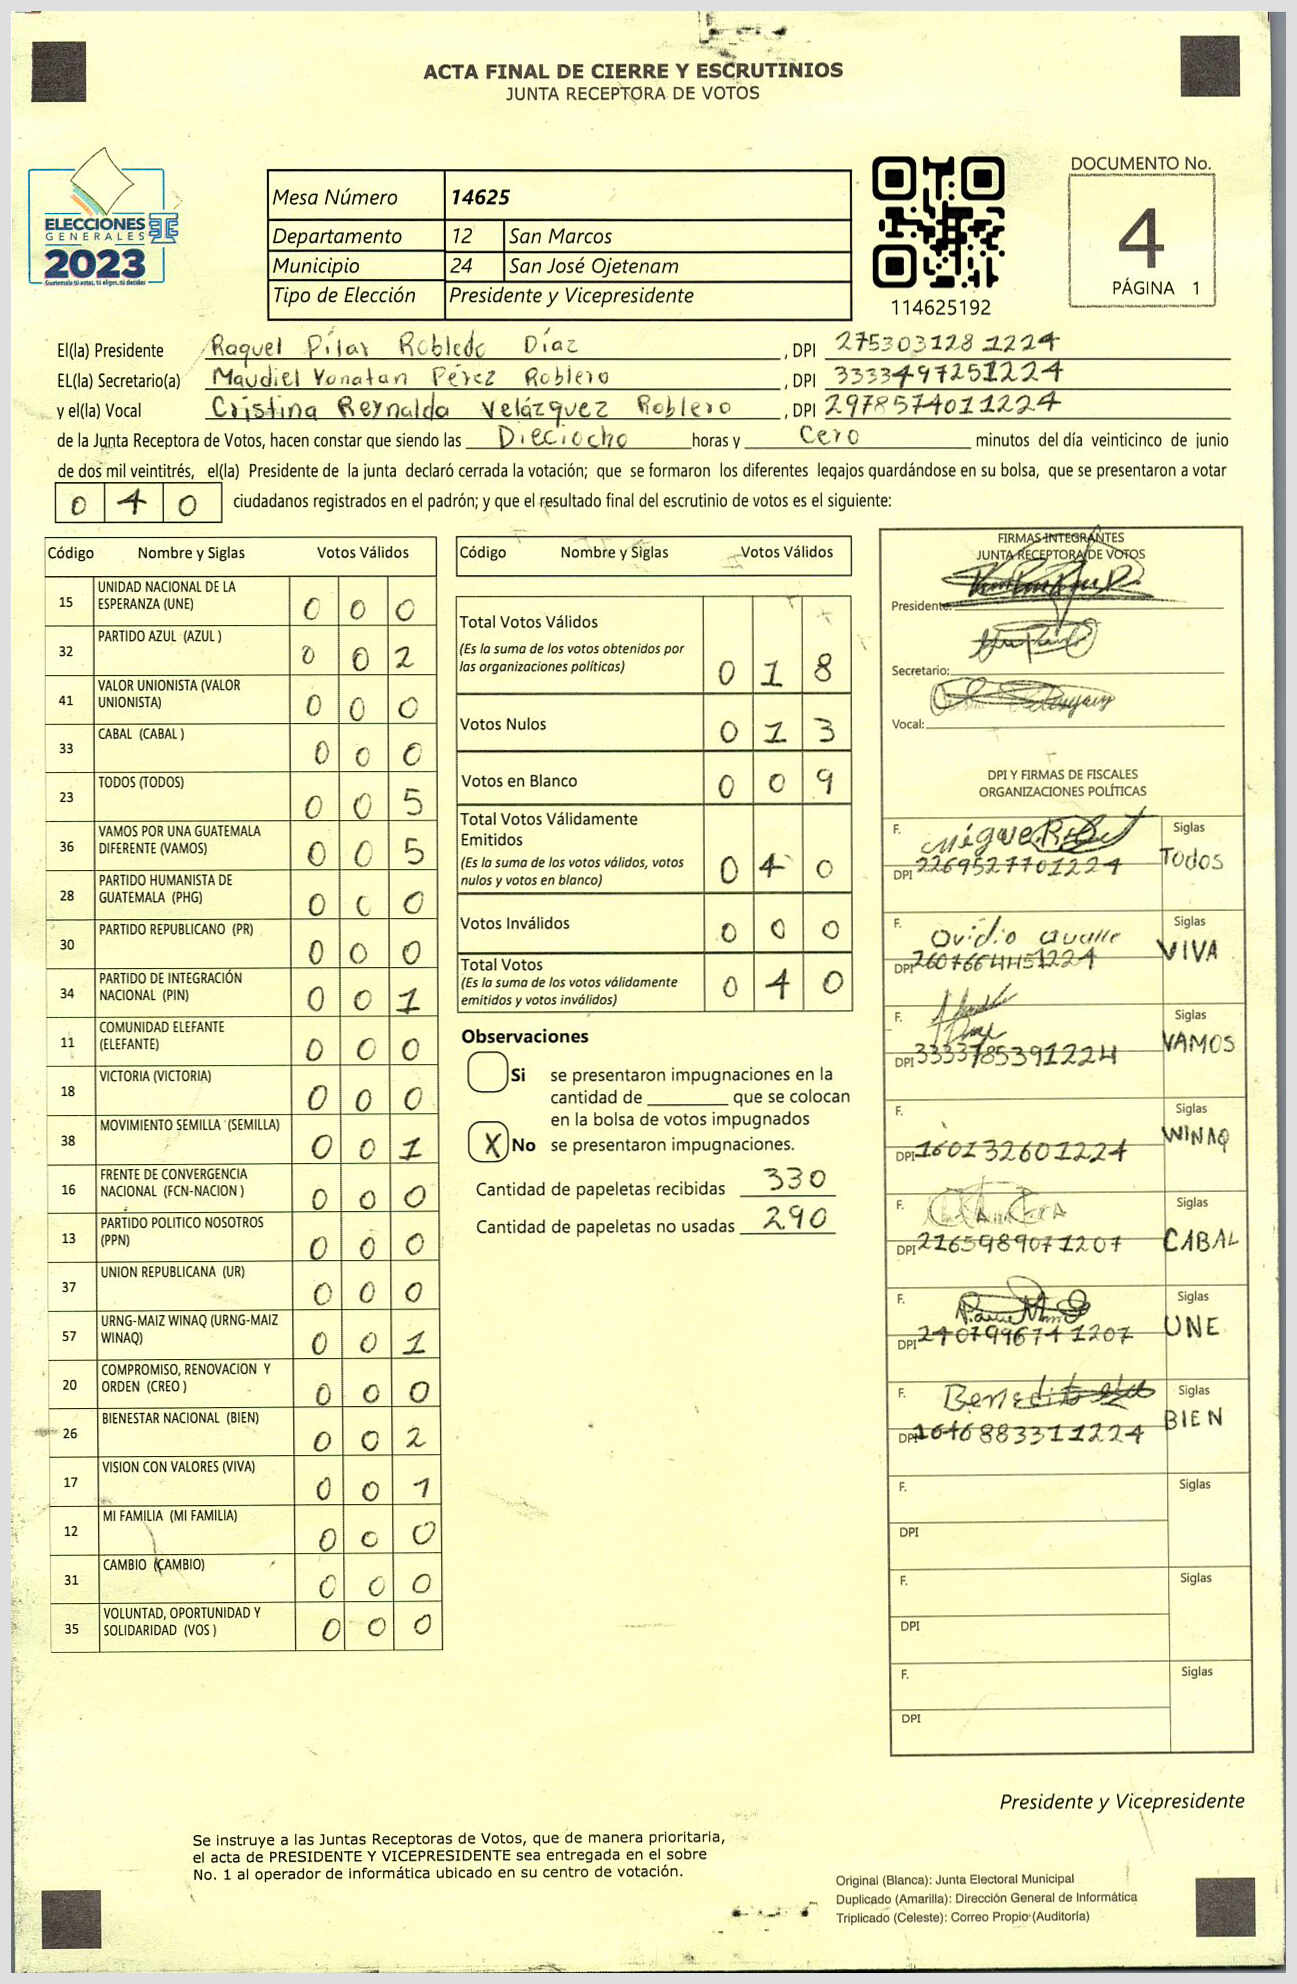 ACTA FINAL DE CIERRE Y ESCRUTINIOS
JUNTA RECEPTORA DE VOTOS
ELECCIONES
GENERALES
2023
Mesa Número 14625
Departamento 12 San Marcos
Municipio 24 San José Ojetenam
Tipo de Elección Presidente y Vicepresidente
114625192
DOCUMENTO No.
4
PÁGINA 1
El(la) Presidente Raquel Pilar Robledo Díaz, DPI 275303128 1224
EL(la) Secretario(a) Maudiel Yonatan Pérez Roblero, DPI 3333497251224
y el(la) Vocal Cristina Reynalda Velázquez Roblero, DPI 2978574011224
de la Junta Receptora de Votos, hacen constar que siendo las Dieciocho horas y Cero minutos del día veinticinco de junio
de dos mil veintitrés, el(la) Presidente de la junta declaró cerrada la votación; que se formaron los diferentes legajos guardándose en su bolsa, que se presentaron a votar
0 4 0 ciudadanos registrados en el padrón; y que el resultado final del escrutinio de votos es el siguiente:
Código Nombre y Siglas Votos Válidos
15 UNIDAD NACIONAL DE LA ESPERANZA (UNE) 0 0 0
32 PARTIDO AZUL (AZUL ) 0 0 2
41 VALOR UNIONISTA (VALOR UNIONISTA) 0 0 0
33 CABAL (CABAL ) 0 0 0
23 TODOS (TODOS) 0 0 5
36 VAMOS POR UNA GUATEMALA DIFERENTE (VAMOS) 0 0 5
28 PARTIDO HUMANISTA DE GUATEMALA (PHG) 0 0 0
30 PARTIDO REPUBLICANO (PR) 0 0 0
34 PARTIDO DE INTEGRACIÓN NACIONAL (PIN) 0 0 1
11 COMUNIDAD ELEFANTE (ELEFANTE) 0 0 0
18 VICTORIA (VICTORIA) 0 0 0
38 MOVIMIENTO SEMILLA (SEMILLA) 0 0 1
16 FRENTE DE CONVERGENCIA NACIONAL (FCN-NACION ) 0 0 0
13 PARTIDO POLITICO NOSOTROS (PPN) 0 0 0
37 UNION REPUBLICANA (UR) 0 0 0
57 URNG-MAIZ WINAQ (URNG-MAIZ WINAQ) 0 0 1
20 COMPROMISO, RENOVACION Y ORDEN (CREO ) 0 0 0
26 BIENESTAR NACIONAL (BIEN) 0 0 2
17 VISION CON VALORES (VIVA) 0 0 1
12 MI FAMILIA (MI FAMILIA) 0 0 0
31 CAMBIO (CAMBIO) 0 0 0
35 VOLUNTAD, OPORTUNIDAD Y SOLIDARIDAD (VOS ) 0 0 0
Código Nombre y Siglas Votos Válidos
Total Votos Válidos
(Es la suma de los votos obtenidos por
las organizaciones políticas) 0 1 8
Votos Nulos 0 1 3
Votos en Blanco 0 0 9
Total Votos Válidamente
Emitidos
(Es la suma de los votos válidos, votos
nulos y votos en blanco) 0 4 0
Votos Inválidos 0 0 0
Total Votos
(Es la suma de los votos válidamente
emitidos y votos inválidos) 0 4 0
Observaciones
Si se presentaron impugnaciones en la
cantidad de ________ que se colocan
en la bolsa de votos impugnados
X No se presentaron impugnaciones.
Cantidad de papeletas recibidas 330
Cantidad de papeletas no usadas 290
FIRMAS INTEGRANTES
JUNTA RECEPTORA DE VOTOS
Presidente:
Secretario:
Vocal:
DPI Y FIRMAS DE FISCALES
ORGANIZACIONES POLÍTICAS
F. Siglas
DPI 2269527701224 Todos
F. Ovidio Siglas
DPI VIVA
F. Siglas
DPI 3333785391224 VAMOS
F. Siglas
DPI 160132601224 WINAQ
F. Siglas
DPI 2165989071207 CABAL
F. Siglas
DPI 2407996741207 UNE
F. Siglas
DPI 1646883311224 BIEN
F. Siglas
DPI
F. Siglas
DPI
F. Siglas
DPI
Presidente y Vicepresidente
Se instruye a las Juntas Receptoras de Votos, que de manera prioritaria,
el acta de PRESIDENTE Y VICEPRESIDENTE sea entregada en el sobre
No. 1 al operador de informática ubicado en su centro de votación.
Original (Blanca): Junta Electoral Municipal
Duplicado (Amarilla): Dirección General de Informática
Triplicado (Celeste): Correo Propio (Auditoría)